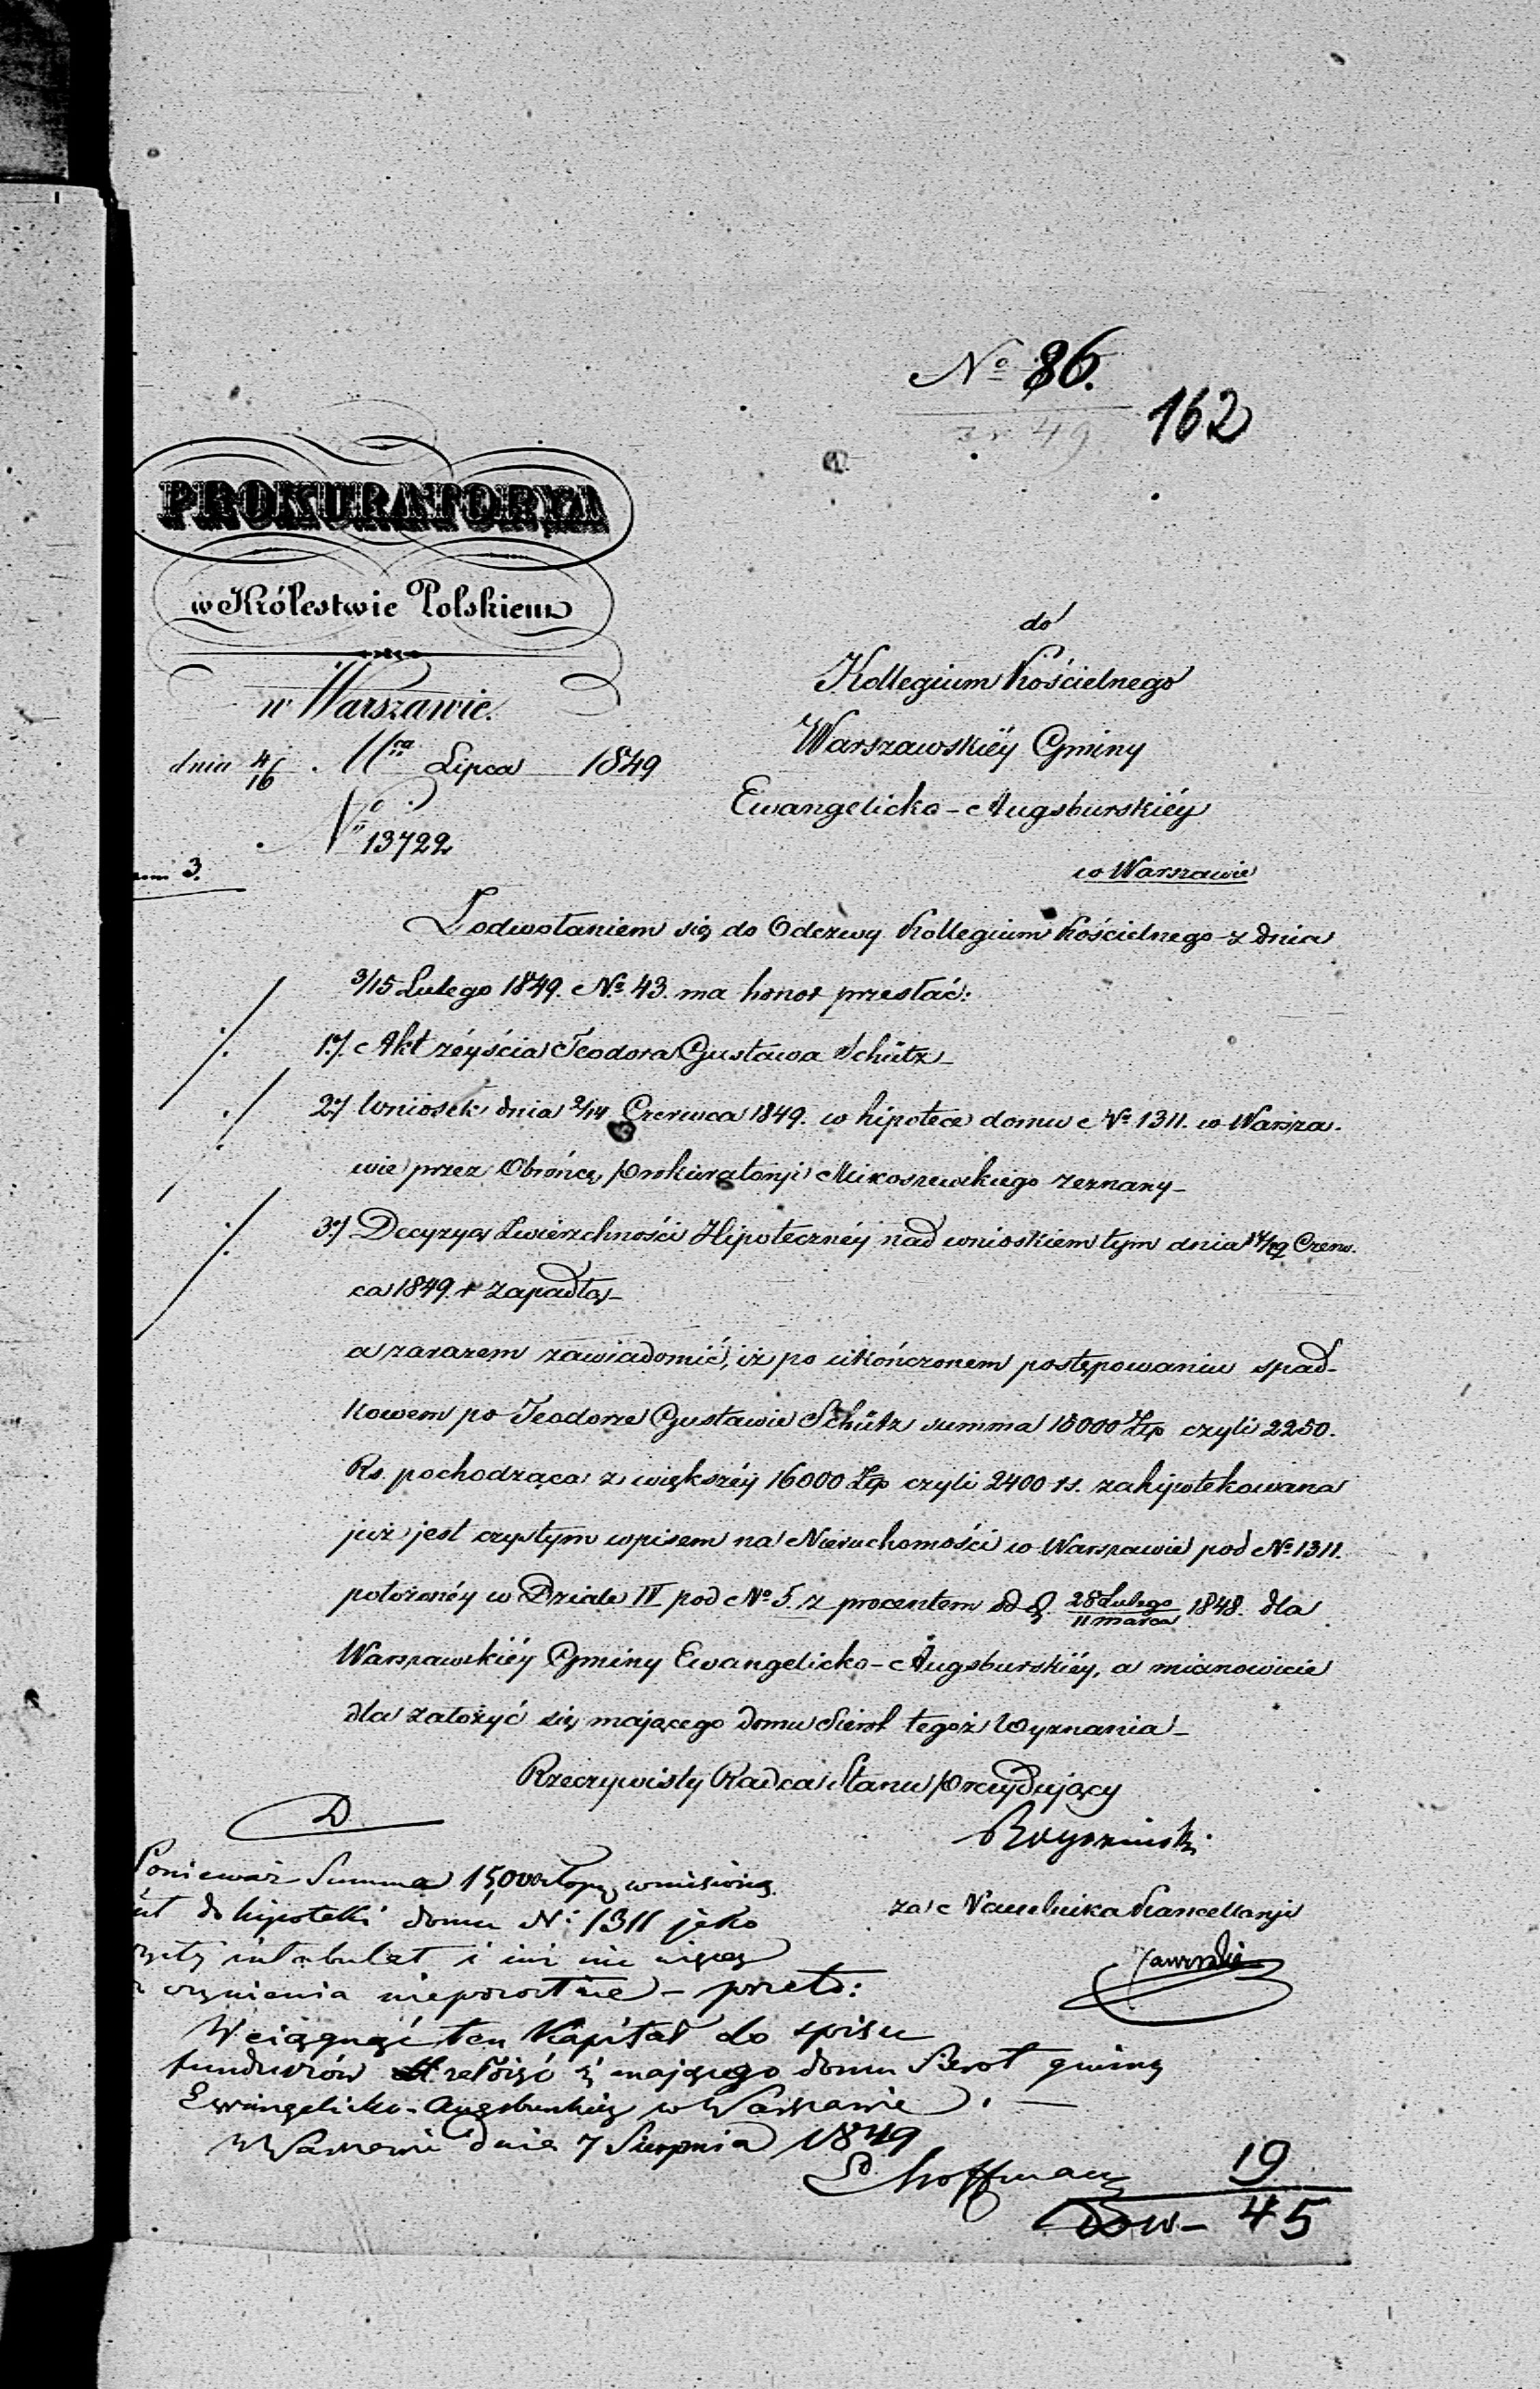 No 86.
162
49
PROKURATORYA
w Królestwie Polskiem
w Warszawie.
dnia 4/16 Mca Lipca 1849
No 13722
3.
do
Kollegium Kościelnego
Warszawskiéy Gminy
Ewangelicko-Augsburskiéy
w Warszawie
Z odwołaniem się do Odezwy Kollegium Kościelnego z dnia
3/15 Lutego 1849. No 43. ma honor przesłać:
1o/. Akt zéyścia Teodora Gustawa Schütz_
2o/ Wniosek dnia 2/14 Czerwca 1849. w hipotece domu No 1311. w Warsza-
wie przez Obrońcę Prokuratoryi Mikoszewskiego zeznany_
3o/ Decyzyą Zwierzchności Hipotecznéy nad wnioskiem tym dnia Czerw-
ca 1849. r zapadłą_
a zarazem zawiadomić, iż po ukończonem postępowaniu spad-
kowem po Teodorze Gustawie Schütz summa 15000 Złp czyli 2250.
Rs. pochodząca z większéy 16000 Złp czyli 2400 rs. zahipotekowana
już jest czystym wpisem na Nieruchomości w Warszawie pod No 1311.
położonéy w Dziale IV pod No 5. z procentem od d. 28 Lutego/11 marca 1848. dla
Warszawskiéy Gminy Ewangelicko-Augsburskiéy, a mianowicie
dla założyć się mającego domu Sierot tegoż Wyznania_
Rzeczywisty Radca Stanu Prezydujący
za Naczelnika Kancellaryi
D
Ponieważ Summa 15,000 wniesioną
do hipoteki domu No 1311 jako
intabulat i nic więcej
czynienia niepozostaie - przeto:
Wciągnąć ten Kapitał do spisu
funduszów założyć się mającego domu Sierot gminy
Ewangelicko-Augsburskiey w Warszawie.
w Warszawie dnia 7 Sierpnia 1849
Hoffmann
19
Dow- 45